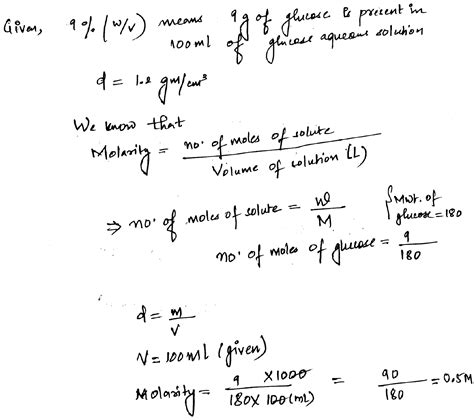 Given, 9% (w/v) means 9g of glucose is present in
100ml of glucose aqueous solution
d = 1.2 gm/cm³
We know that
Molarity = no. of moles of solute / Volume of solution (L)
⇒ no. of moles of solute = w/M {Mwt. of glucose = 180
no. of moles of glucose = 9/180
d = m/v
V = 100ml (given)
Molarity = 9 × 1000 / 180 × 100 (mL) = 90/180 = 0.5M